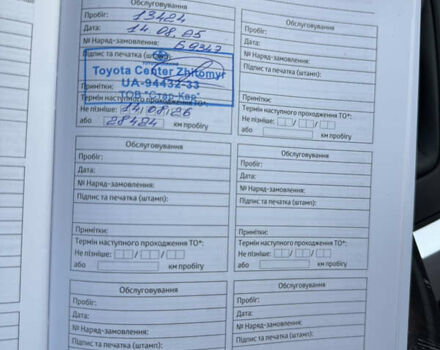 Обслуговування
Пробіг: 13424
Дата: 14.08.25
№ Наряд-замовлення:
Підпис та печатка (штамп)
Toyota Center Zhitomyr
UA-94432-33
ТОВ "Стар-Кар"
Примітки:
Термін наступного проходження ТО*:
Не пізніше: 14/08/26
або 28424 км пробігу
Обслуговування
Пробіг:
Дата:
№ Наряд-замовлення:
Підпис та печатка (штамп):
Примітки:
Термін наступного проходження ТО*:
Не пізніше: / /
або км пробігу
Обслуговування
Пробіг:
Дата:
№ Наряд-замовлення:
Підпис та печатка (штамп):
Примітки:
Термін наступного проходження ТО*:
Не пізніше: / /
або км пробігу
Обслуговування
Пробіг:
Дата:
№ Наряд-замовлення:
Підпис та печатка (штамп):
Примітки:
Термін наступного проходження ТО*:
Не пізніше: / /
або км пробігу
Обслуговування
Пробіг:
Дата:
№ Наряд-замовлення:
Підпис та печатка (штамп):
Обслуговування
Пробіг:
Дата:
№ Наряд-замовлення:
Підпис та печатка (штамп):